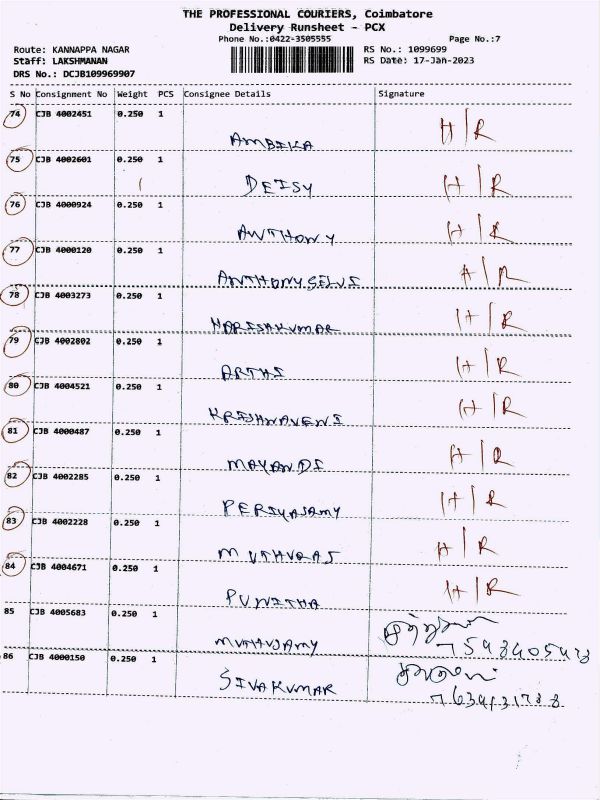 THE PROFESSIONAL COURIERS, Coimbatore
Delivery Runsheet - PCX
Phone No.:0422-3505555 Page No.:7
Route: KANNAPPA NAGAR RS No.: 1099699
Staff: LAKSHMANAN RS Date: 17-Jan-2023
DRS No.: DCJB109969907
S No Consignment No Weight PCS Consignee Details Signature
74 CJB 4002451 0.250 1 AMBIKA H/R
75 CJB 4002601 0.250 1 DEISY H/R
76 CJB 4000924 0.250 1 ANTHONY H/R
77 CJB 4000120 0.250 1 ANTHONY SELVI H/R
78 CJB 4003273 0.250 1 HARISHKUMAR H/R
79 CJB 4002802 0.250 1 ARTHI H/R
80 CJB 4004521 0.250 1 KRISHNAVENI H/R
81 CJB 4000487 0.250 1 MAYANDI H/R
82 CJB 4002285 0.250 1 PERIYASAMY H/R
83 CJB 4002228 0.250 1 MUTHURAJ H/R
84 CJB 4004671 0.250 1 PUNITHA H/R
85 CJB 4005683 0.250 1 MUTHUSAMY
86 CJB 4000150 0.250 1 SIVAKUMAR